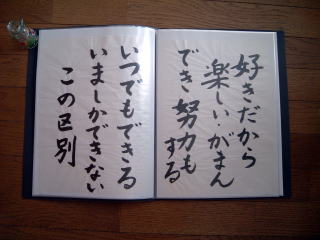 好きだから
楽しい.がまん
でき努力も
する
いつでもできる
いましかできない
この区別